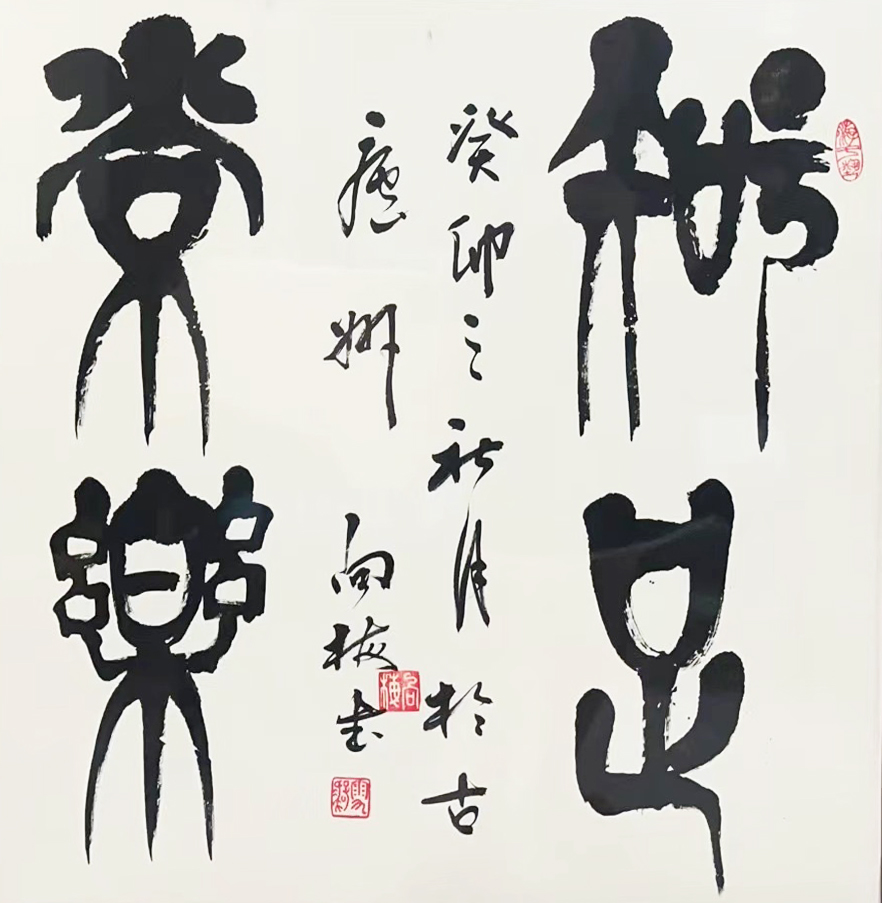 知足
常樂
癸卯之秋月於古
廬州 向梅书